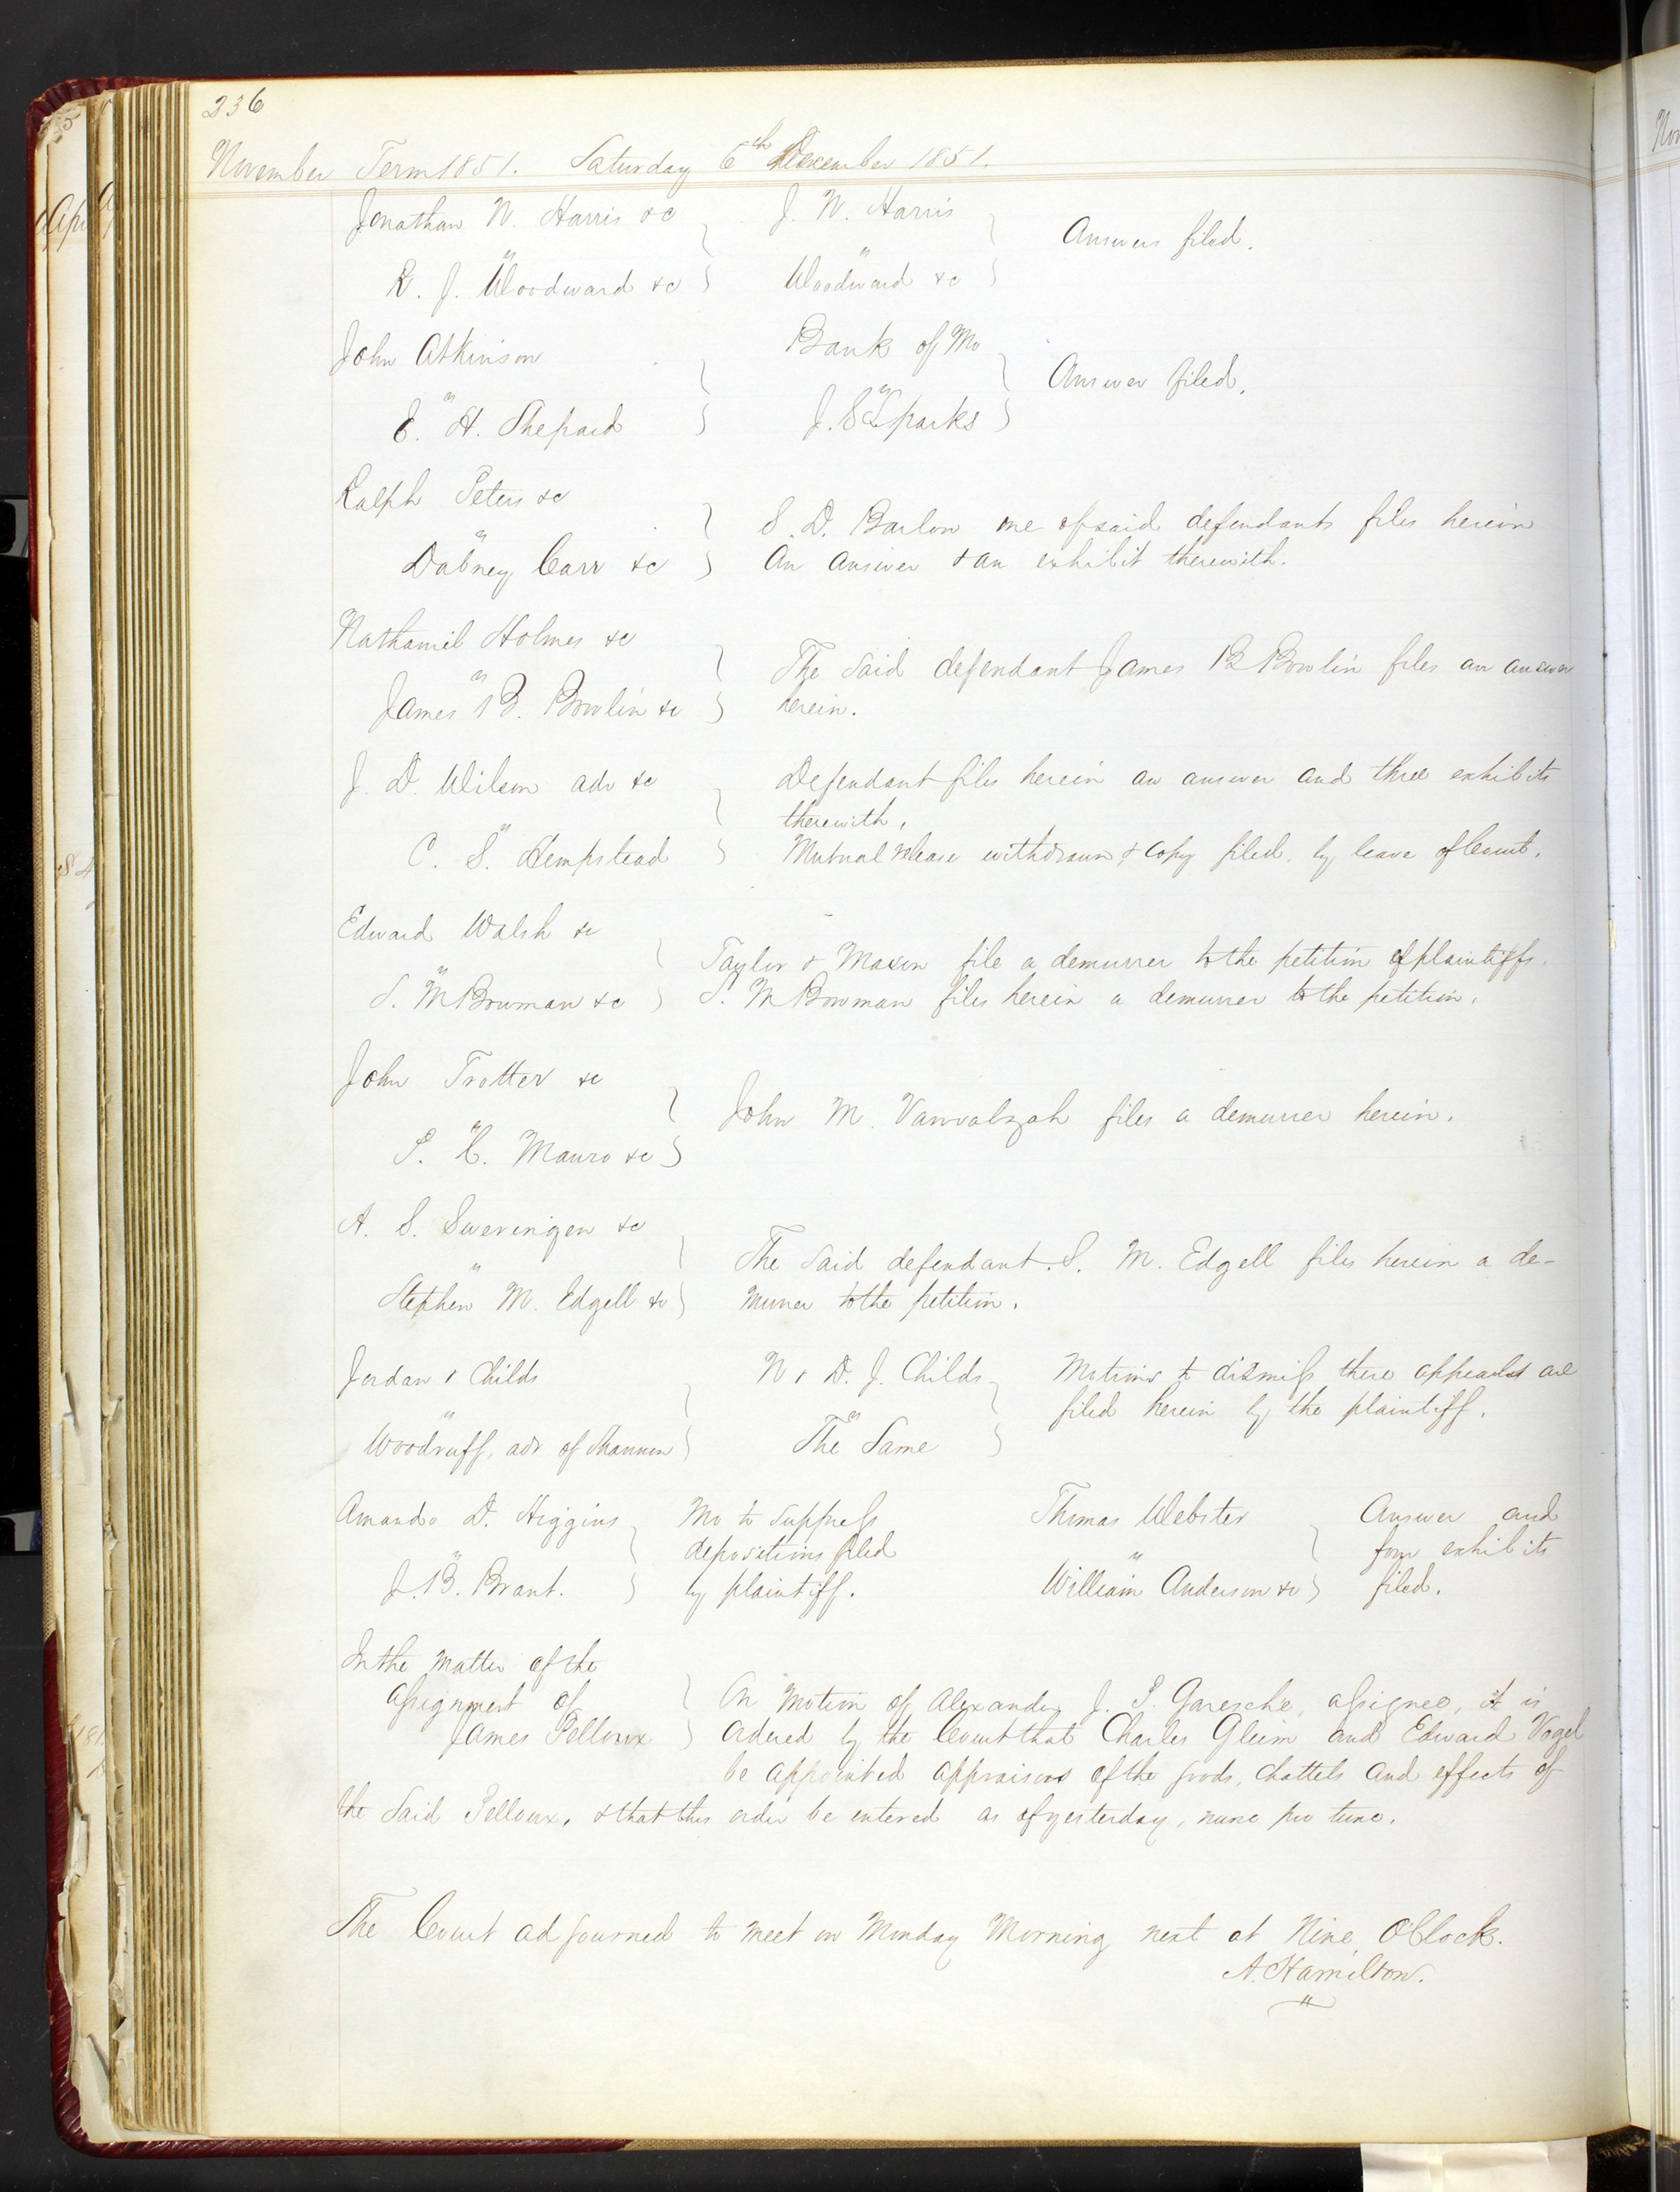 236
November Term 1851. Saturday 6th December 1851.
Jonathan N. Harris &c } J. N. Harris } Answers filed.
"
R. J. Woodward &c } Woodward &c }
John Atkinson } Bank of Mo } Answer filed.
"
E. H. Shepard } J. S. Sparks }
Ralph Peters &c
"
Dabney Carr &c }
S. D. Barlow one of said defendants files herein
an answer & an exhibit therewith.
Nathaniel Holmes &c
"
James B. Bowlin &c }
The said defendant James B Bowlin files an answer
herein.
J. D. Wilson adr &c
"
C. S. Hempstead }
Defendant files herein an answer and three exhibits
therewith,
Mutual release withdrawn, & copy filed, by leave of Court.
Edward Walsh &c
"
S. M Bowman &c }
Taylor & Mason file a demurrer to the petition of plaintiffs.
S. M Bowman files herein a demurrer to the petition.
John Trotter &c
"
P. C. Mauro &c }
John M. Vanvalzah files a demurrer herein.
A. S. Sweringen &c
"
Stephen M. Edgell &c }
The said defendant S. M. Edgell files herein a de-
murrer to the petition.
Jordan & Childs
"
Woodruff, adr of Shannon }
N & D. J. Childs
"
The Same }
Motions to dismiss these appeals are
filed herein by the plaintiff.
Amanda D. Higgins
"
J. B. Brant. }
Mo to suppress
depositions filed
by plaintiff.
Thomas Webster
"
William Anderson &c }
Answer and
four exhibits
filed.
In the matter of the
assignment of
James Pelloux }
On motion of Alexander J. P. Garesche, assignee, it is
ordered by the Court that Charles Gleim and Edward Vogel
be appointed appraisors of the goods, chattels and effects of
the said Pelloux, & that this order be entered as of yesterday, nunc pro tunc.
The Court adjourned to meet on Monday Morning next at Nine O'Clock.
A. Hamilton.